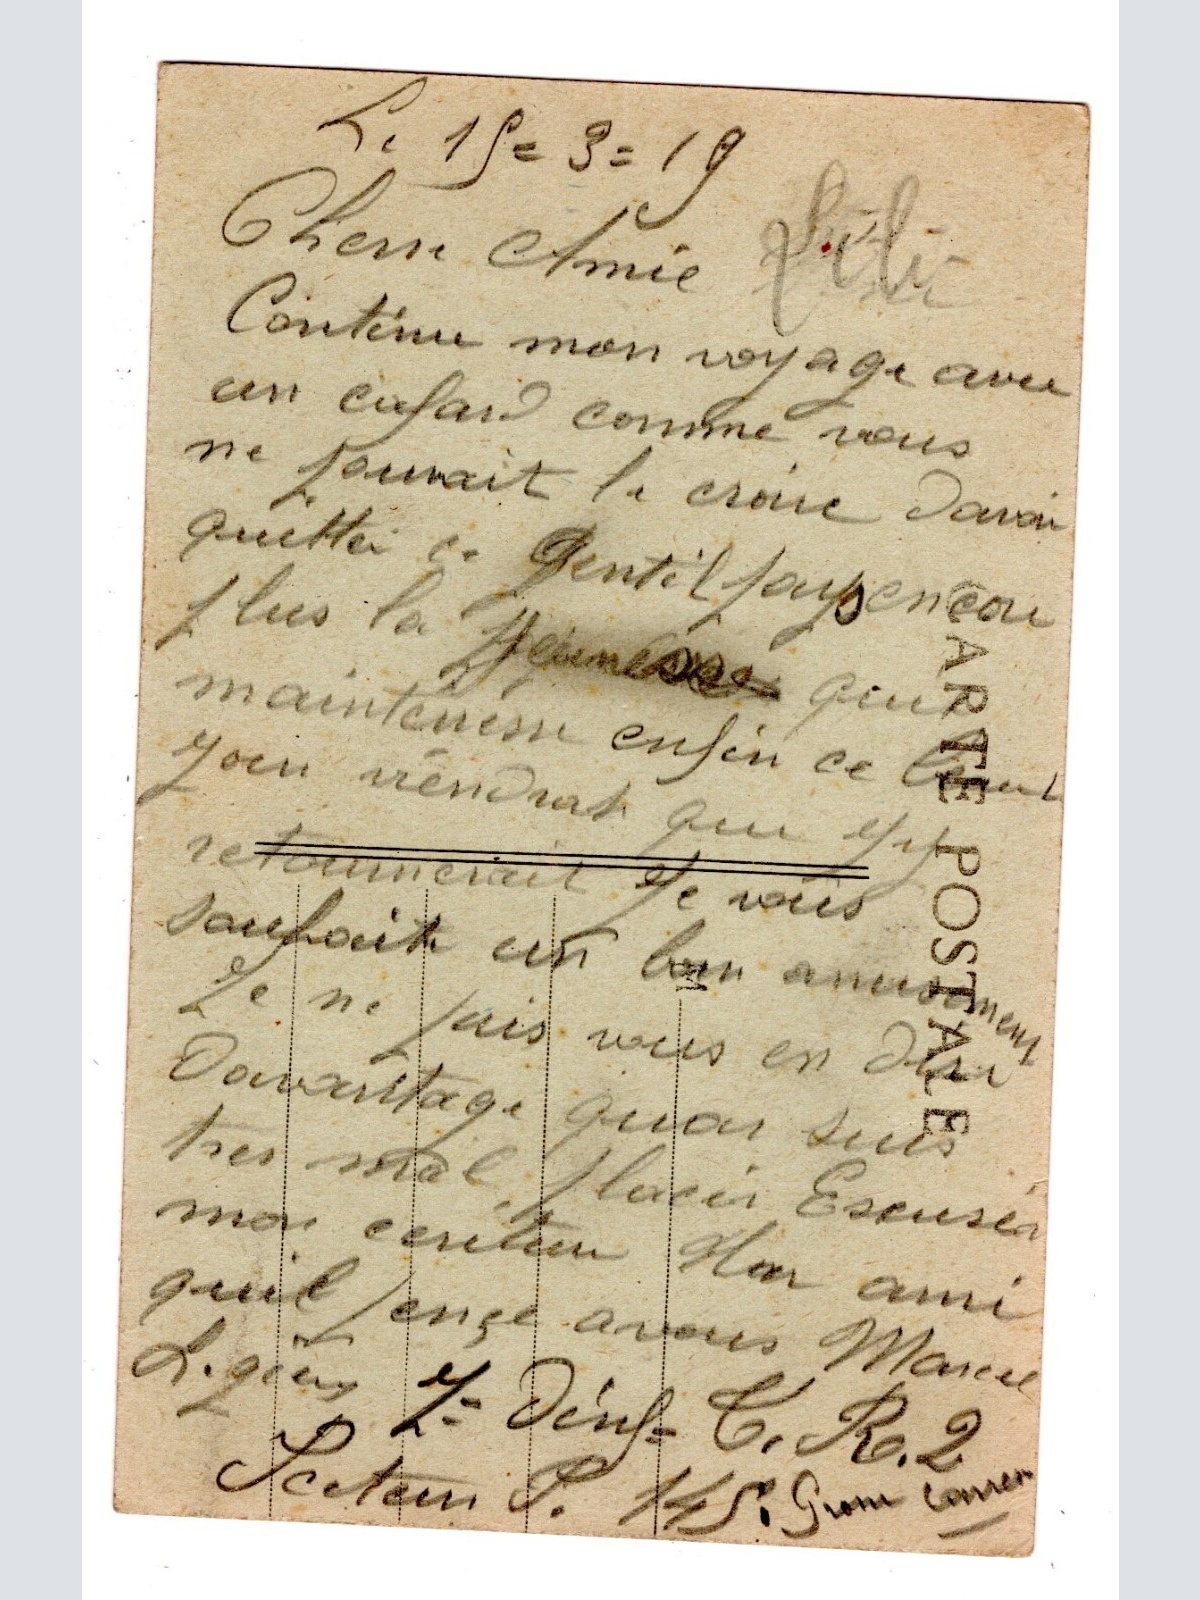 Le 15=3=19
Cherre Amie Lili
Continu mon voyage avec
un cafard comme vous
ne pouvait le croire davoir
quitter ce Gentil pays encore
plus la jeunesse que
maintenenn enfin ce
jour viendrat que j'y
retournerait Je vous
souhait un bon amusement
Je ne puis vous en dire
Davantage quar suis
tres mal placer Escuser
mon ecriture Mon ami
quil penze avous Marcel
Legieux
Secteur P. 145.
CARTE POSTALE